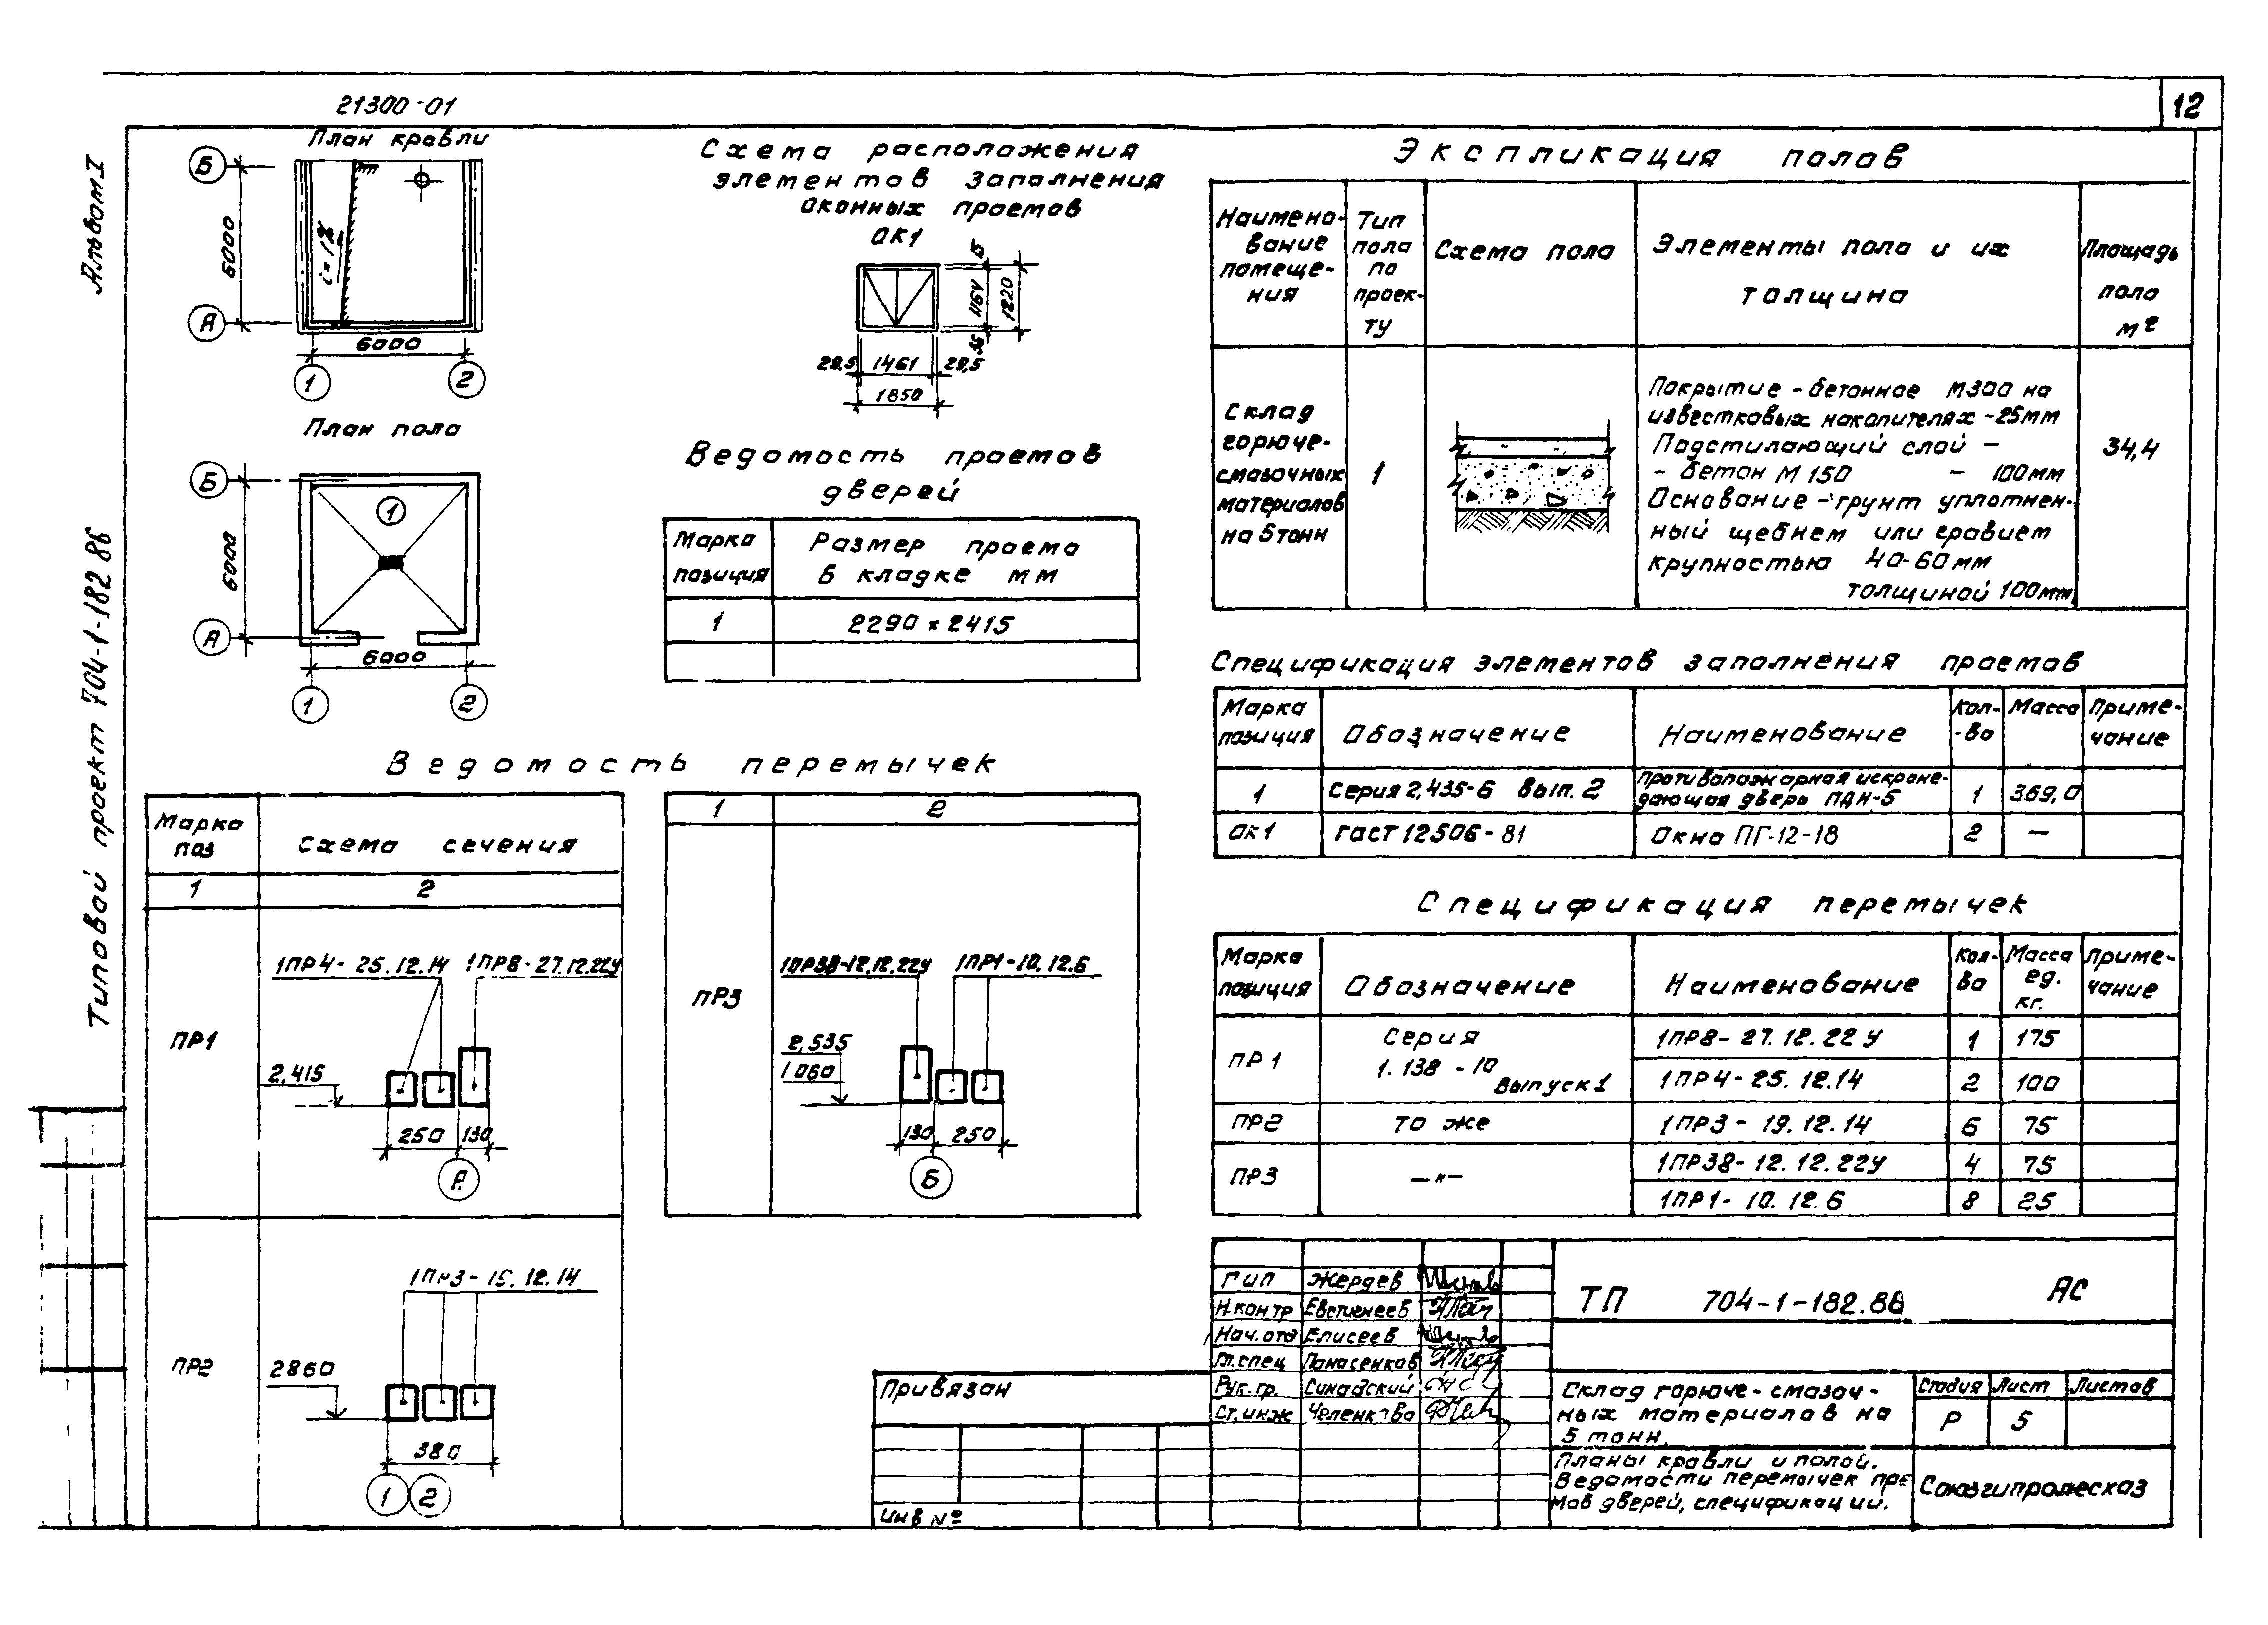 12
21300-01
Альбом I
Типовой проект 704-1-182 86
План кровли
Б
А
6000
i=1%
6000
1
2
План пола
Б
А
6000
1
6000
1
2
Схема расположения
элементов заполнения
оконных проемов
ОК1
1164
1220
29.5
1461
29,5
1850
Ведомость проемов
дверей
Марка
позиция
Размер проема
в кладке мм
1
2290 x 2415
Ведомость перемычек
Марка
поз
Схема сечения
1
2
ПР1
1ПР4-25.12.14
1ПР8-27.12.22У
2,415
250
130
А
ПР2
1ПР3-
12.14
2860
380
1
2
1
2
ПР3
1ПР38-12.12.22У
1ПР1-10.12.6
2,535
1 060
130
250
Б
Экспликация полов
Наимено-
вание
помеще-
ния
Тип
пола
по
проек-
ту
Схема пола
Элементы пола и их
толщина
Площадь
пола
м²
Склад
горюче-
смазочных
материалов
на 5 тонн
1
Покрытие - бетонное М300 на
известковых накопителях - 25мм
Подстилающий слой -
- бетон М 150 - 100мм
Основание - грунт уплотнен-
ный щебнем или гравием
крупностью 40-60мм
толщиной 100мм
34,4
Спецификация элементов заполнения проемов
Марка
позиция
Обозначение
Наименование
Кол-
-во
Масса
Приме-
чание
1
Серия 2,435-6 вып. 2
Противопожарная искроне-
дающая дверь ПДН-5
1
369,0
ОК1
ГОСТ 12506-81
Окно ПГ-12-18
2
—
Спецификация перемычек
Марка
позиция
Обозначение
Наименование
Кол-
во
Масса
ед.
кг.
Приме-
чание
ПР1
Серия
1.138 - 10
Выпуск 1
1ПР8-27.12.22У
1
175
1ПР4-25.12.14
2
100
ПР2
то же
1ПР3-19.12.14
6
75
ПР3
—"—
1ПР38-12.12.22У
4
75
1ПР1-10.12.6
8
25
Привязан
Инв №
ГИП Жердев
Н.контр Евстигнеев
Нач.отд Елисеев
Гл.спец Панасенков
Рук.гр. Синадский
Ст.инж Челенкова
ТП 704-1-182.86
АС
Склад горюче-смазоч-
ных материалов на
5 тонн.
Стадия
Лист
Листов
Р
5
Планы кровли и полой.
Ведомости перемычек прое
мов дверей, спецификаций.
Союзгипролесхоз